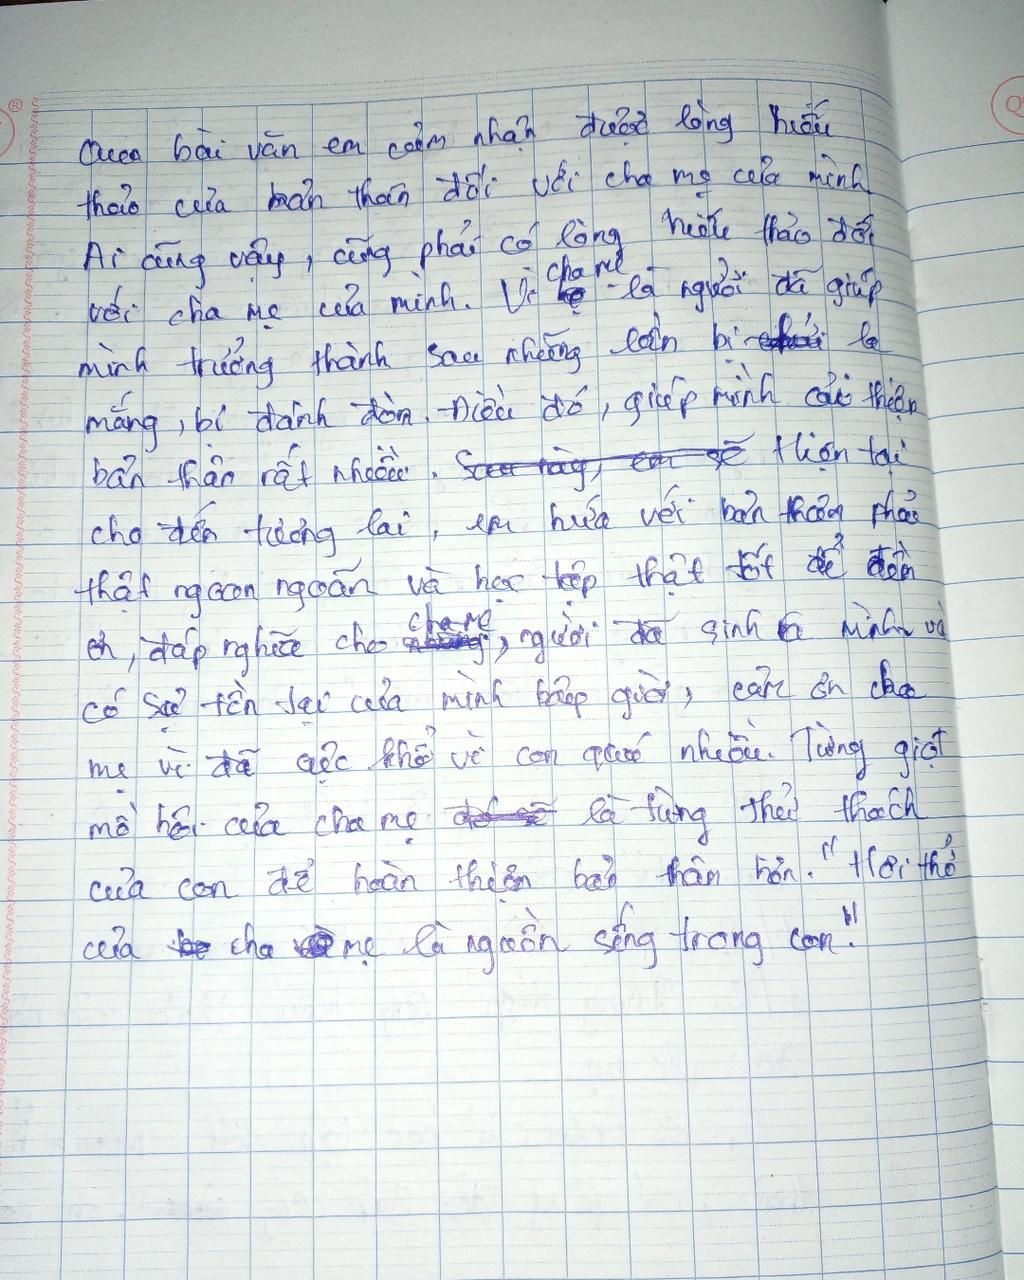 Qua bài văn em cảm nhận được lòng hiếu
thảo của bản thân đối với cha mẹ của mình
Ai cũng vậy, cũng phải có lòng hiếu thảo đối
với cha mẹ của mình. Vì cha mẹ là người đã giúp
mình trưởng thành sau những lần bị la
mắng, bị đánh đòn. Điều đó, giúp mình cải thiện
bản thân rất nhiều. Hiện tại
cho đến tương lai, em hứa với bản thân phải
thật ngoan ngoãn và học tập thật tốt để đền
ơn, đáp nghĩa cho cha mẹ, người đã sinh ra mình và
có sự tồn tại của mình bây giờ, cảm ơn cha
mẹ vì đã cực khổ vì con quá nhiều. Từng giọt
mồ hôi của cha mẹ là từng thử thách
của con để hoàn thiện bản thân hơn. "Hơi thở
của cha mẹ là nguồn sống trong con."